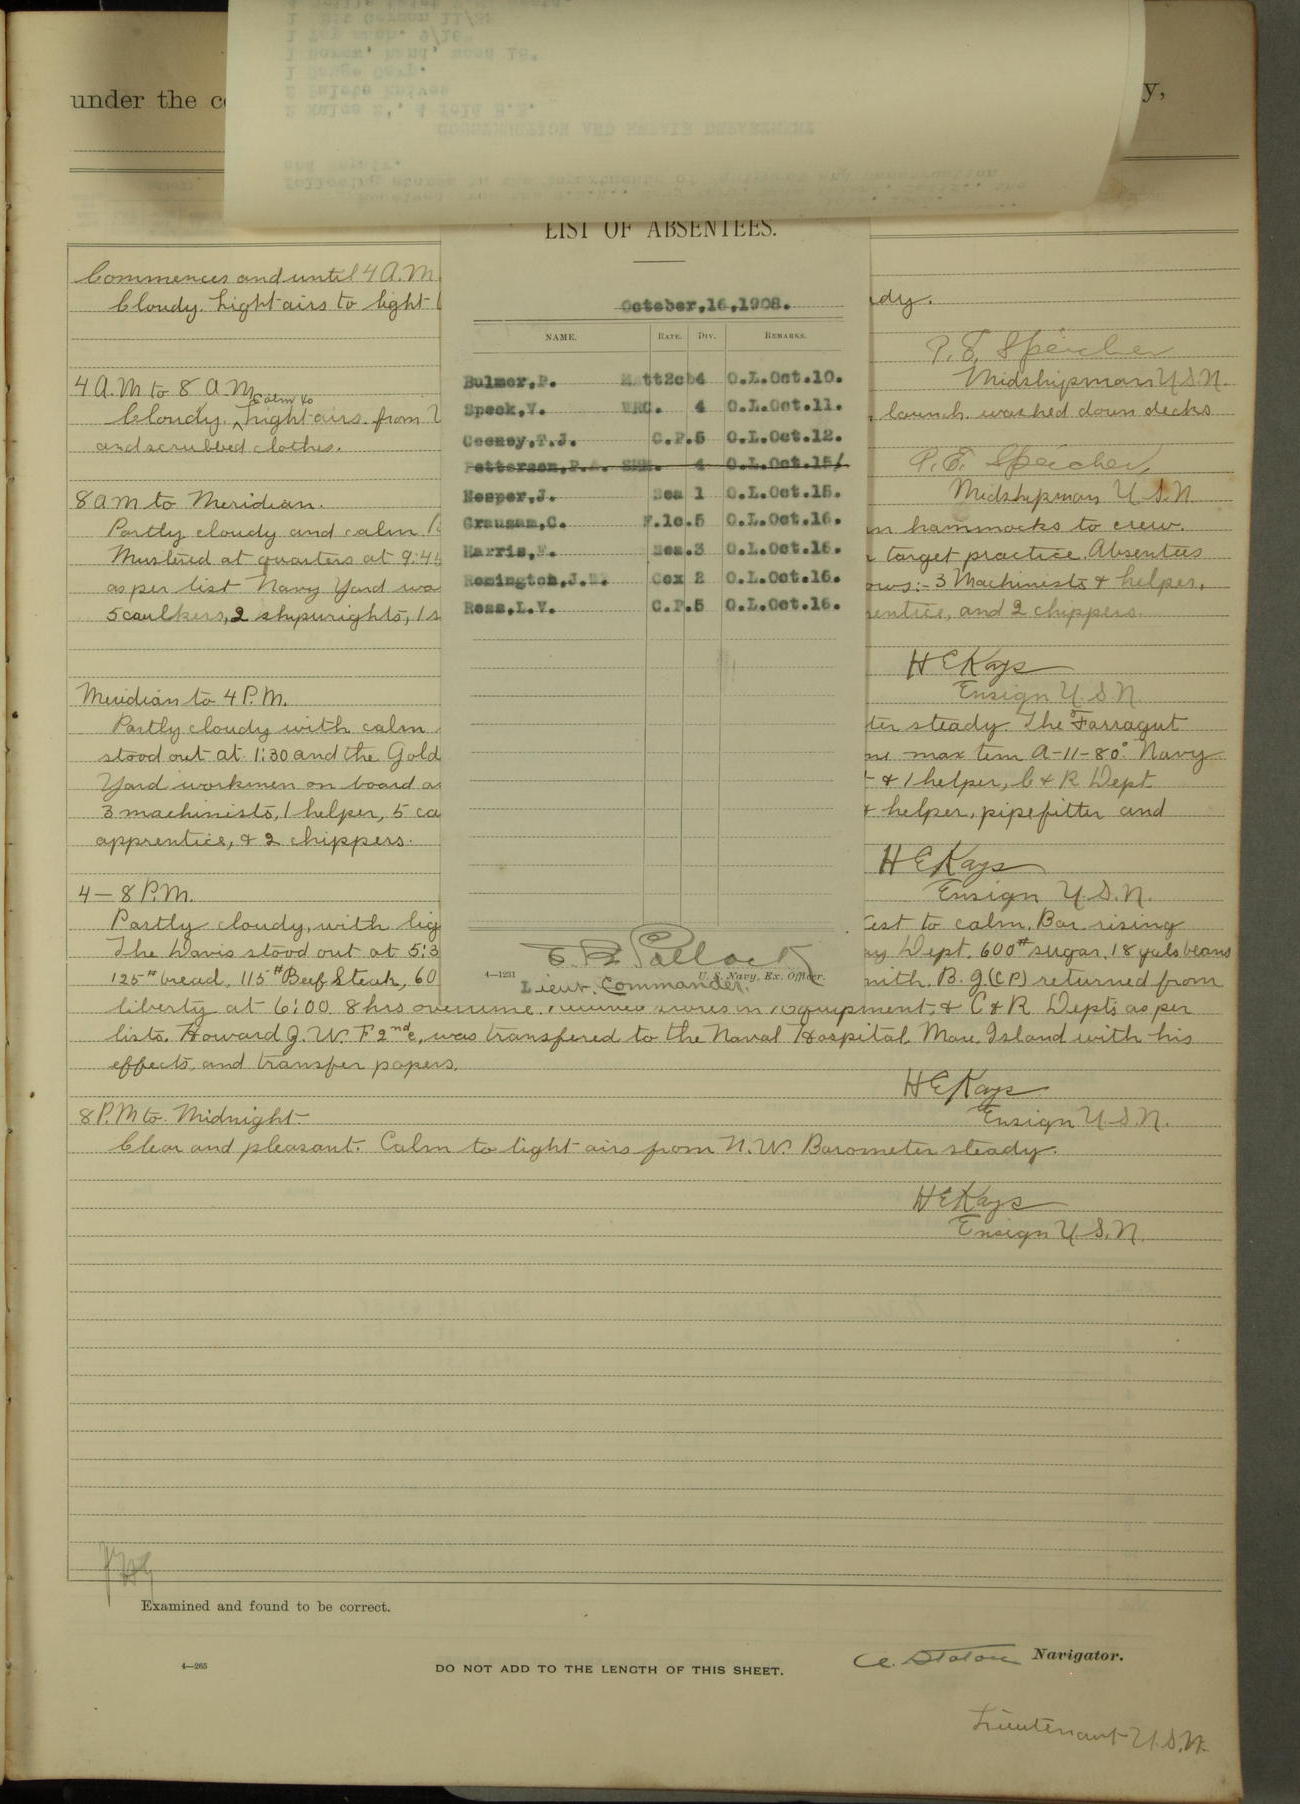 under the
y,
LIST OF ABSENTEES.
October,16,1908.
NAME. RATE. DIV. REMARKS.
Bulmer,P. Matt2cb4 O.L.Oct.10.
Speck,V. WRC. 4 O.L.Oct.11.
Ceeney,T.J. C.P.5 O.L.Oct.12.
Patterson,P.A. SHM. 4 O.L.Oct.15/
Hesper,J. Sea 1 O.L.Oct.15.
Grausam,C. F.1c.5 O.L.Oct.16.
Harris, Sea.3 O.L.Oct.16.
Remington,J. Cox 2 O.L.Oct.16.
Ross,L.V. C.P.5 O.L.Oct.16.
Pollock
4-1231 U. S. Navy, Ex. Officer.
Lieut. Commander.
Commences and until 4 A.M
Cloudy. Light airs to light dy.
P. E. Speicher
Midshipman U.S.N.
4 A.M to 8 A M.
calm to
Cloudy. ^ Light airs from launch. washed down decks
and scrubbed clothes.
P. E. Speicher
Midshipman U.S.N
8 am to Meridian.
Partly cloudy and calm hammocks to crew.
Mustered at quarters at 9:45 target practice. Absentees
as per list Navy Yard ows:- 3 Machinists & helper,
5 caulkers, 2 shipwrights, 1 entice, and 2 chippers.
H E Kays
Ensign U.S.N
Meridian to 4 P.M.
Partly cloudy with calm ter steady. The Farragut
stood out at 1:30 and the Gold max tem A-11-80° Navy
Yard workmen on board & 1 helper, C & R Dept
3 machinists, 1 helper, 5 ca & helper, pipefitter and
apprentice, & 2 chippers.
H E Kays
Ensign U.S.N.
4 — 8 P.M.
Partly cloudy, with lig est to calm. Bar rising
The Davis stood out at 5:3 Dept. 600# sugar, 18 gals beans
125# bread, 115# Beef Steak, 60 mith. B. J (CP) returned from
liberty at 6:00 8 hrs overtime. received stores in Equipment, & C & R Depts as per
lists. Howard J. W. F 2nd c, was transfered to the Naval Hospital Mare Island with his
effects, and transfer papers.
H E Kays
Ensign U.S.N.
8 P.M to Midnight
Clear and pleasant. Calm to light airs from N.W. Barometer steady.
H E Kays
Ensign U.S.N.
Examined and found to be correct.
A. Staton Navigator.
4—265
DO NOT ADD TO THE LENGTH OF THIS SHEET.
Lieutenant U.S.N.